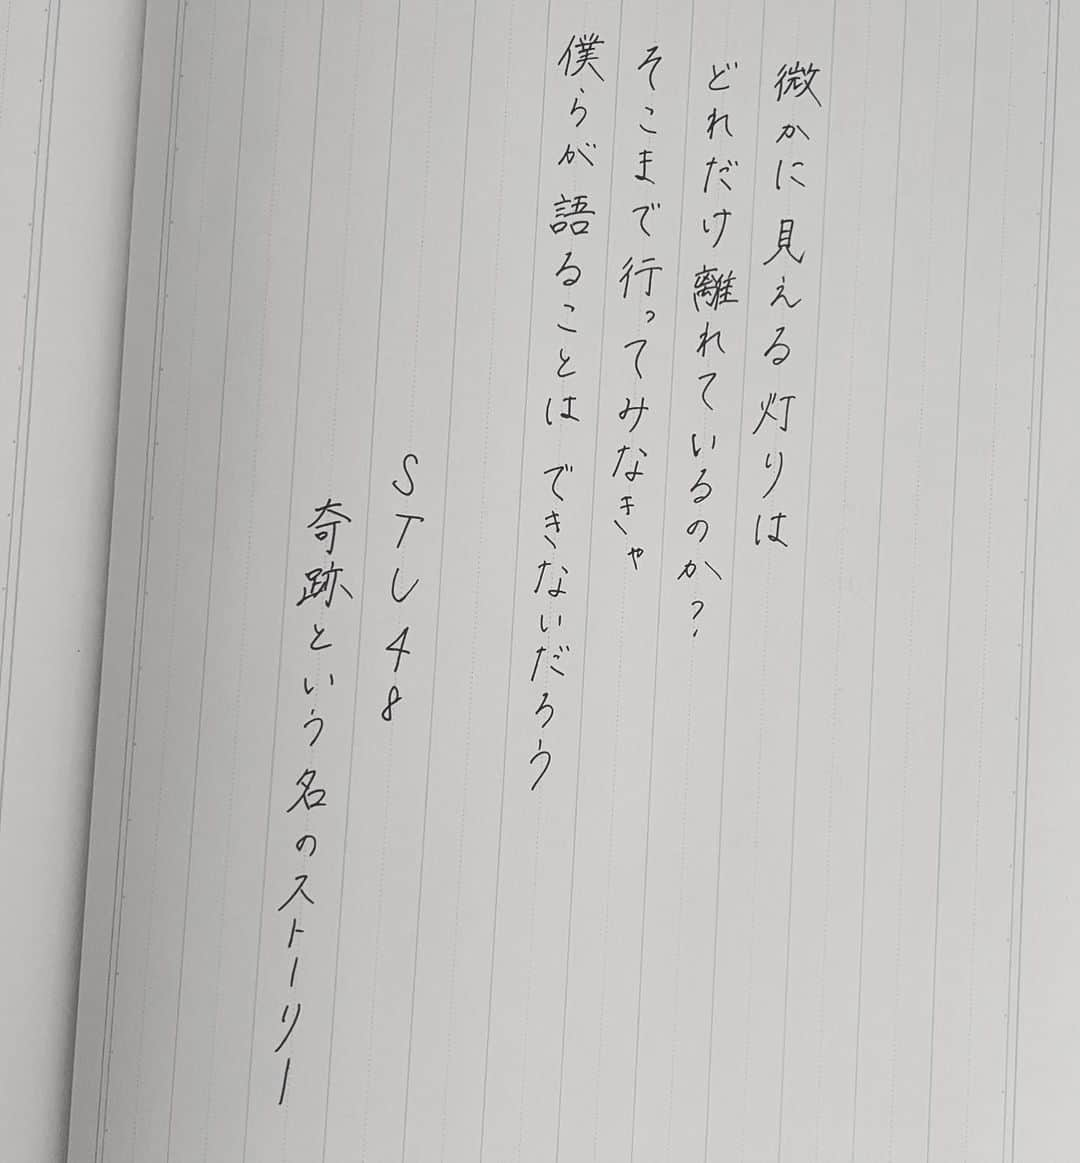 微かに見える灯りは
どれだけ離れているのか?
そこまで行ってみなきゃ
僕らが語ることは できないだろう
STU48
奇跡という名のストーリー